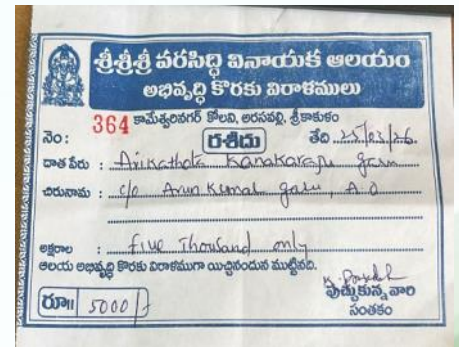 శ్రీశ్రీశ్రీ వరసిద్ధి వినాయక ఆలయం
అభివృద్ధి కొరకు విరాళములు
కామేశ్వరినగర్ కోలని, అరసవల్లి, శ్రీకాకుళం
నెం: 364 రశీదు తేది 25/03/26
దాత పేరు : Arikathota Kanakaraju garu
చిరునామ : c/o Arun Kumal garu, A.O
అక్షరాల : five Thousand only
ఆలయ అభివృద్ధి కొరకు విరాళముగా యిచ్చినందున ముట్టినవి.
రూ॥ 5000/-
పుచ్చుకున్న వారి
సంతకం